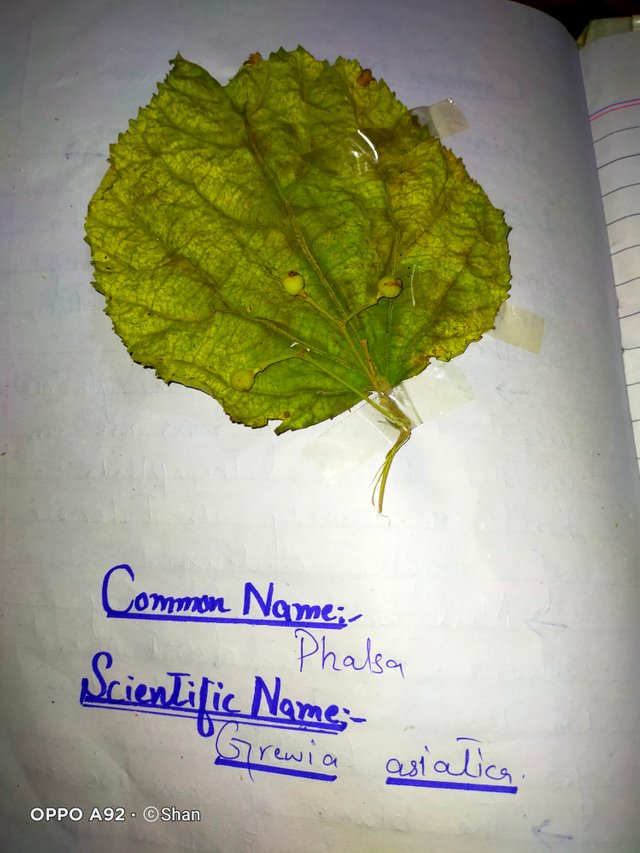 Common Name:-
Phalsa
Scientific Name:-
Grewia asiatica.
OPPO A92 · ©Shan